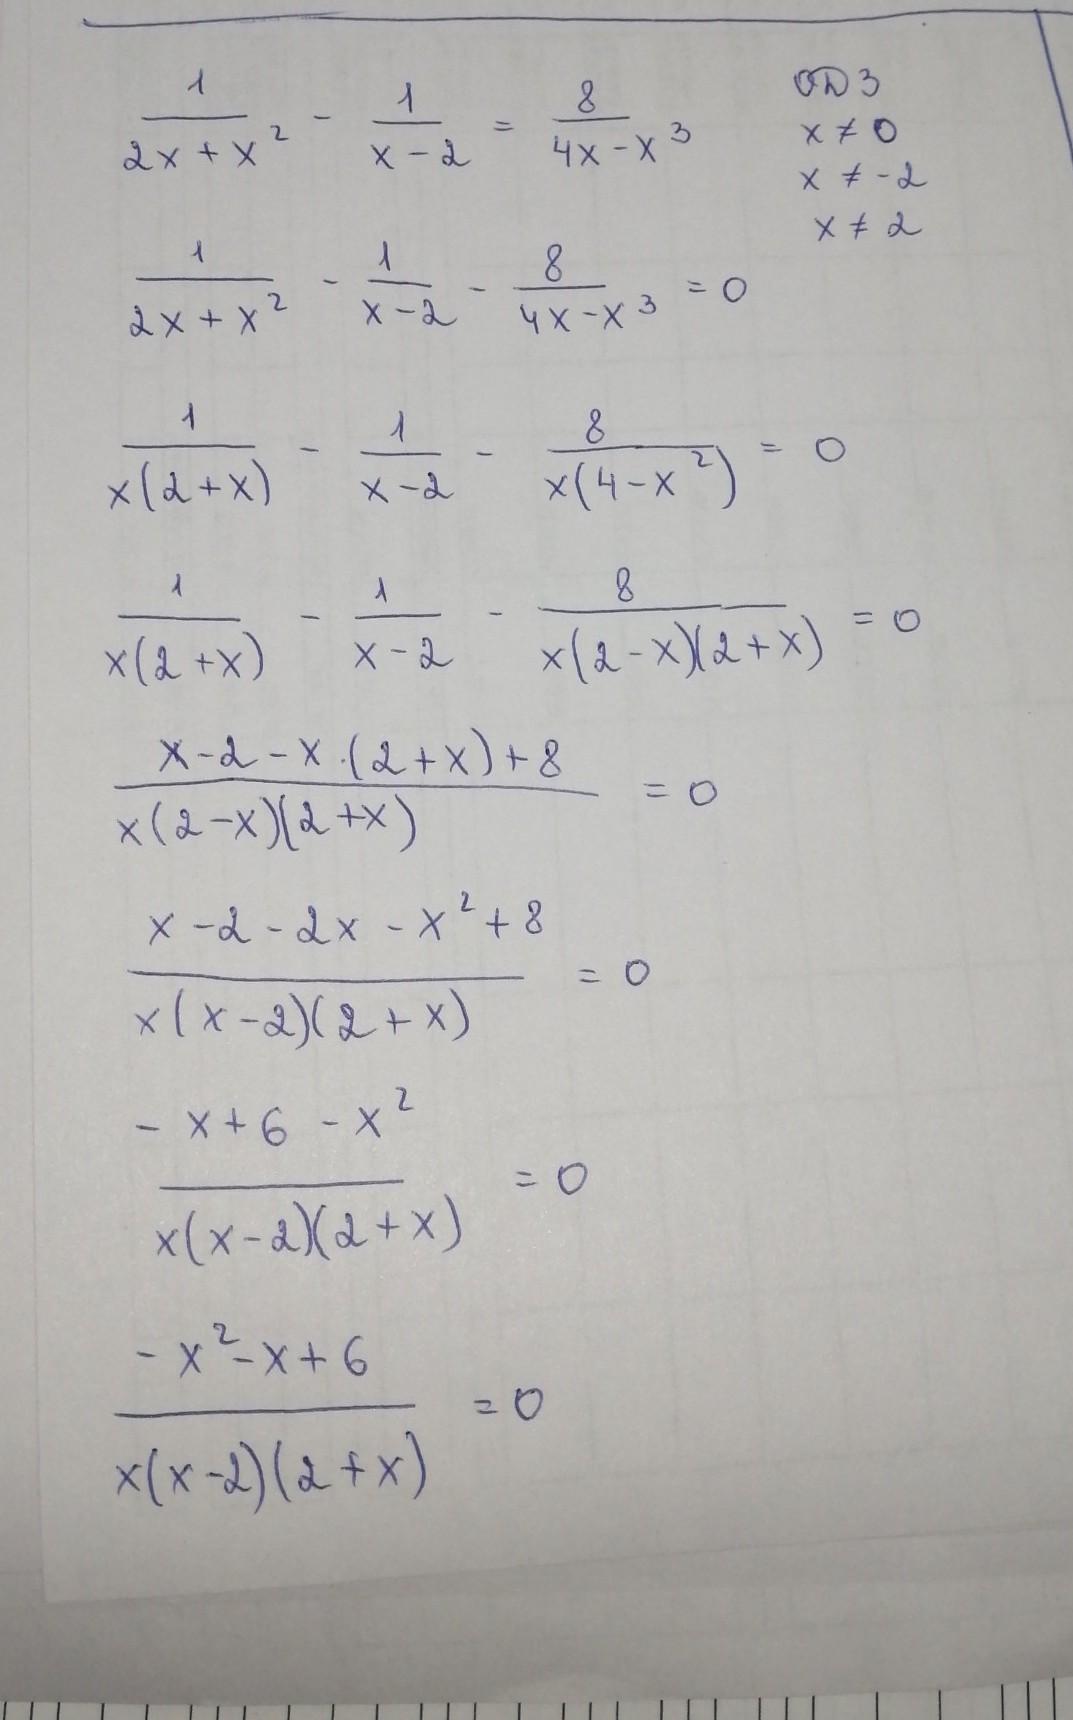 1/(2x + x²) - 1/(x - 2) = 8/(4x - x³)
ОДЗ
x ≠ 0
x ≠ -2
x ≠ 2
1/(2x + x²) - 1/(x - 2) - 8/(4x - x³) = 0
1/(x(2 + x)) - 1/(x - 2) - 8/(x(4 - x²)) = 0
1/(x(2 + x)) - 1/(x - 2) - 8/(x(2 - x)(2 + x)) = 0
(x - 2 - x·(2 + x) + 8)/(x(2 - x)(2 + x)) = 0
(x - 2 - 2x - x² + 8)/(x(x - 2)(2 + x)) = 0
(- x + 6 - x²)/(x(x - 2)(2 + x)) = 0
(- x² - x + 6)/(x(x - 2)(2 + x)) = 0